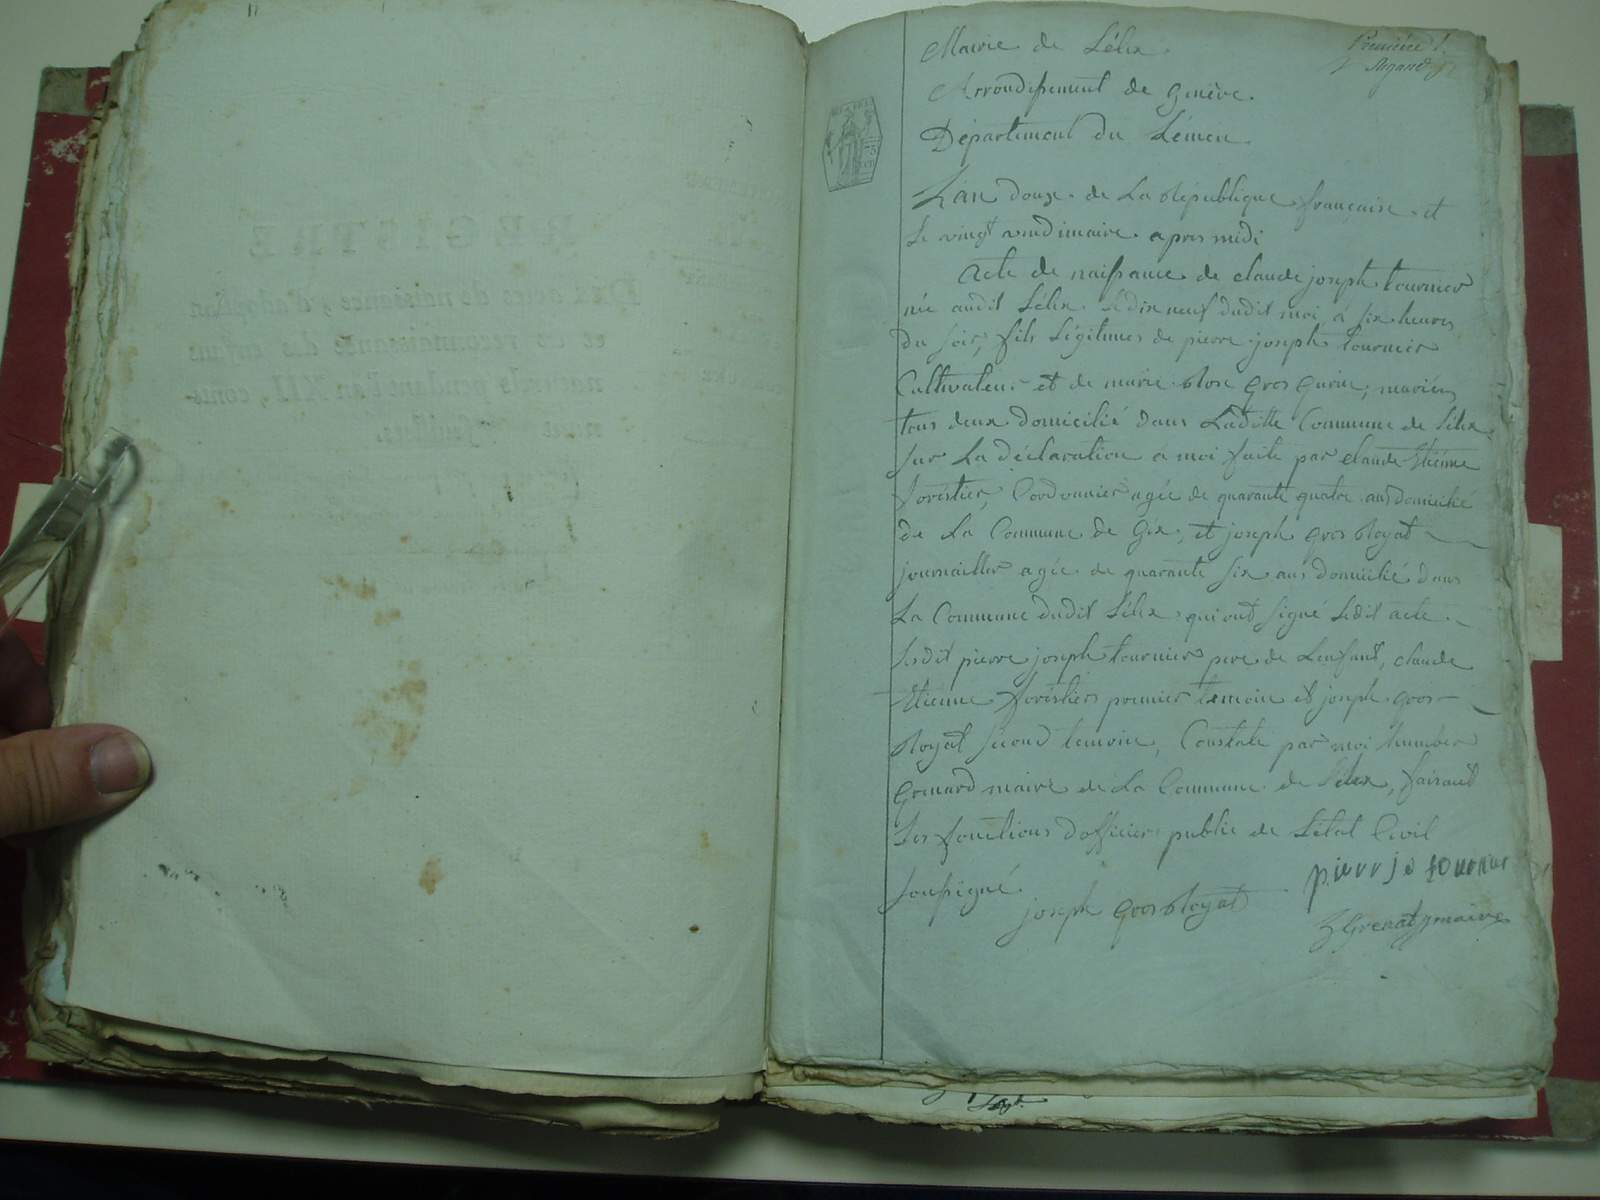 Mairie de Lélex
Première f.
Argand
Arrondissement de Genève.
Département du Léman
L'an douze de La République française et
Le vingt vendimiaire apres midi
Acte de naissance de claude joseph tournier
née audit Lélex Le dix neuf dudit moi à six heures
du soir, fils Légitimes de pierre joseph tournier
Cultivateur et de marie Rose Gros Gurin, mariés
tous deux domicilié dans Ladille Commune de Lélex
sur La déclaration à moi faite par claude Etiénne
forêstier, Cordonnier agée de quarante quatre ans domicilié
de La Commune de Gex, et joseph Gros Royat
journaillier agée de quarante six ans domicilié dans
La Commune dudit Lélex qui ont signé Ledit acte
Ledit pierre joseph tournier pere de Lenfant, claude
Etienne forêstier premier temoin et joseph Gros
Royat second temoin, Constaté par moi humber
Grenard maire de La Commune de Lélex, faisant
Les fonctions d'officier public de Létat Civil
soussigné.
pierr jo tournier
joseph Gros Royat
maire
REGISTRE
Des actes de naissance, d'adoption
et de reconnaissance des enfans
naturels pendant l'an XII, conte-
nant feuillets.